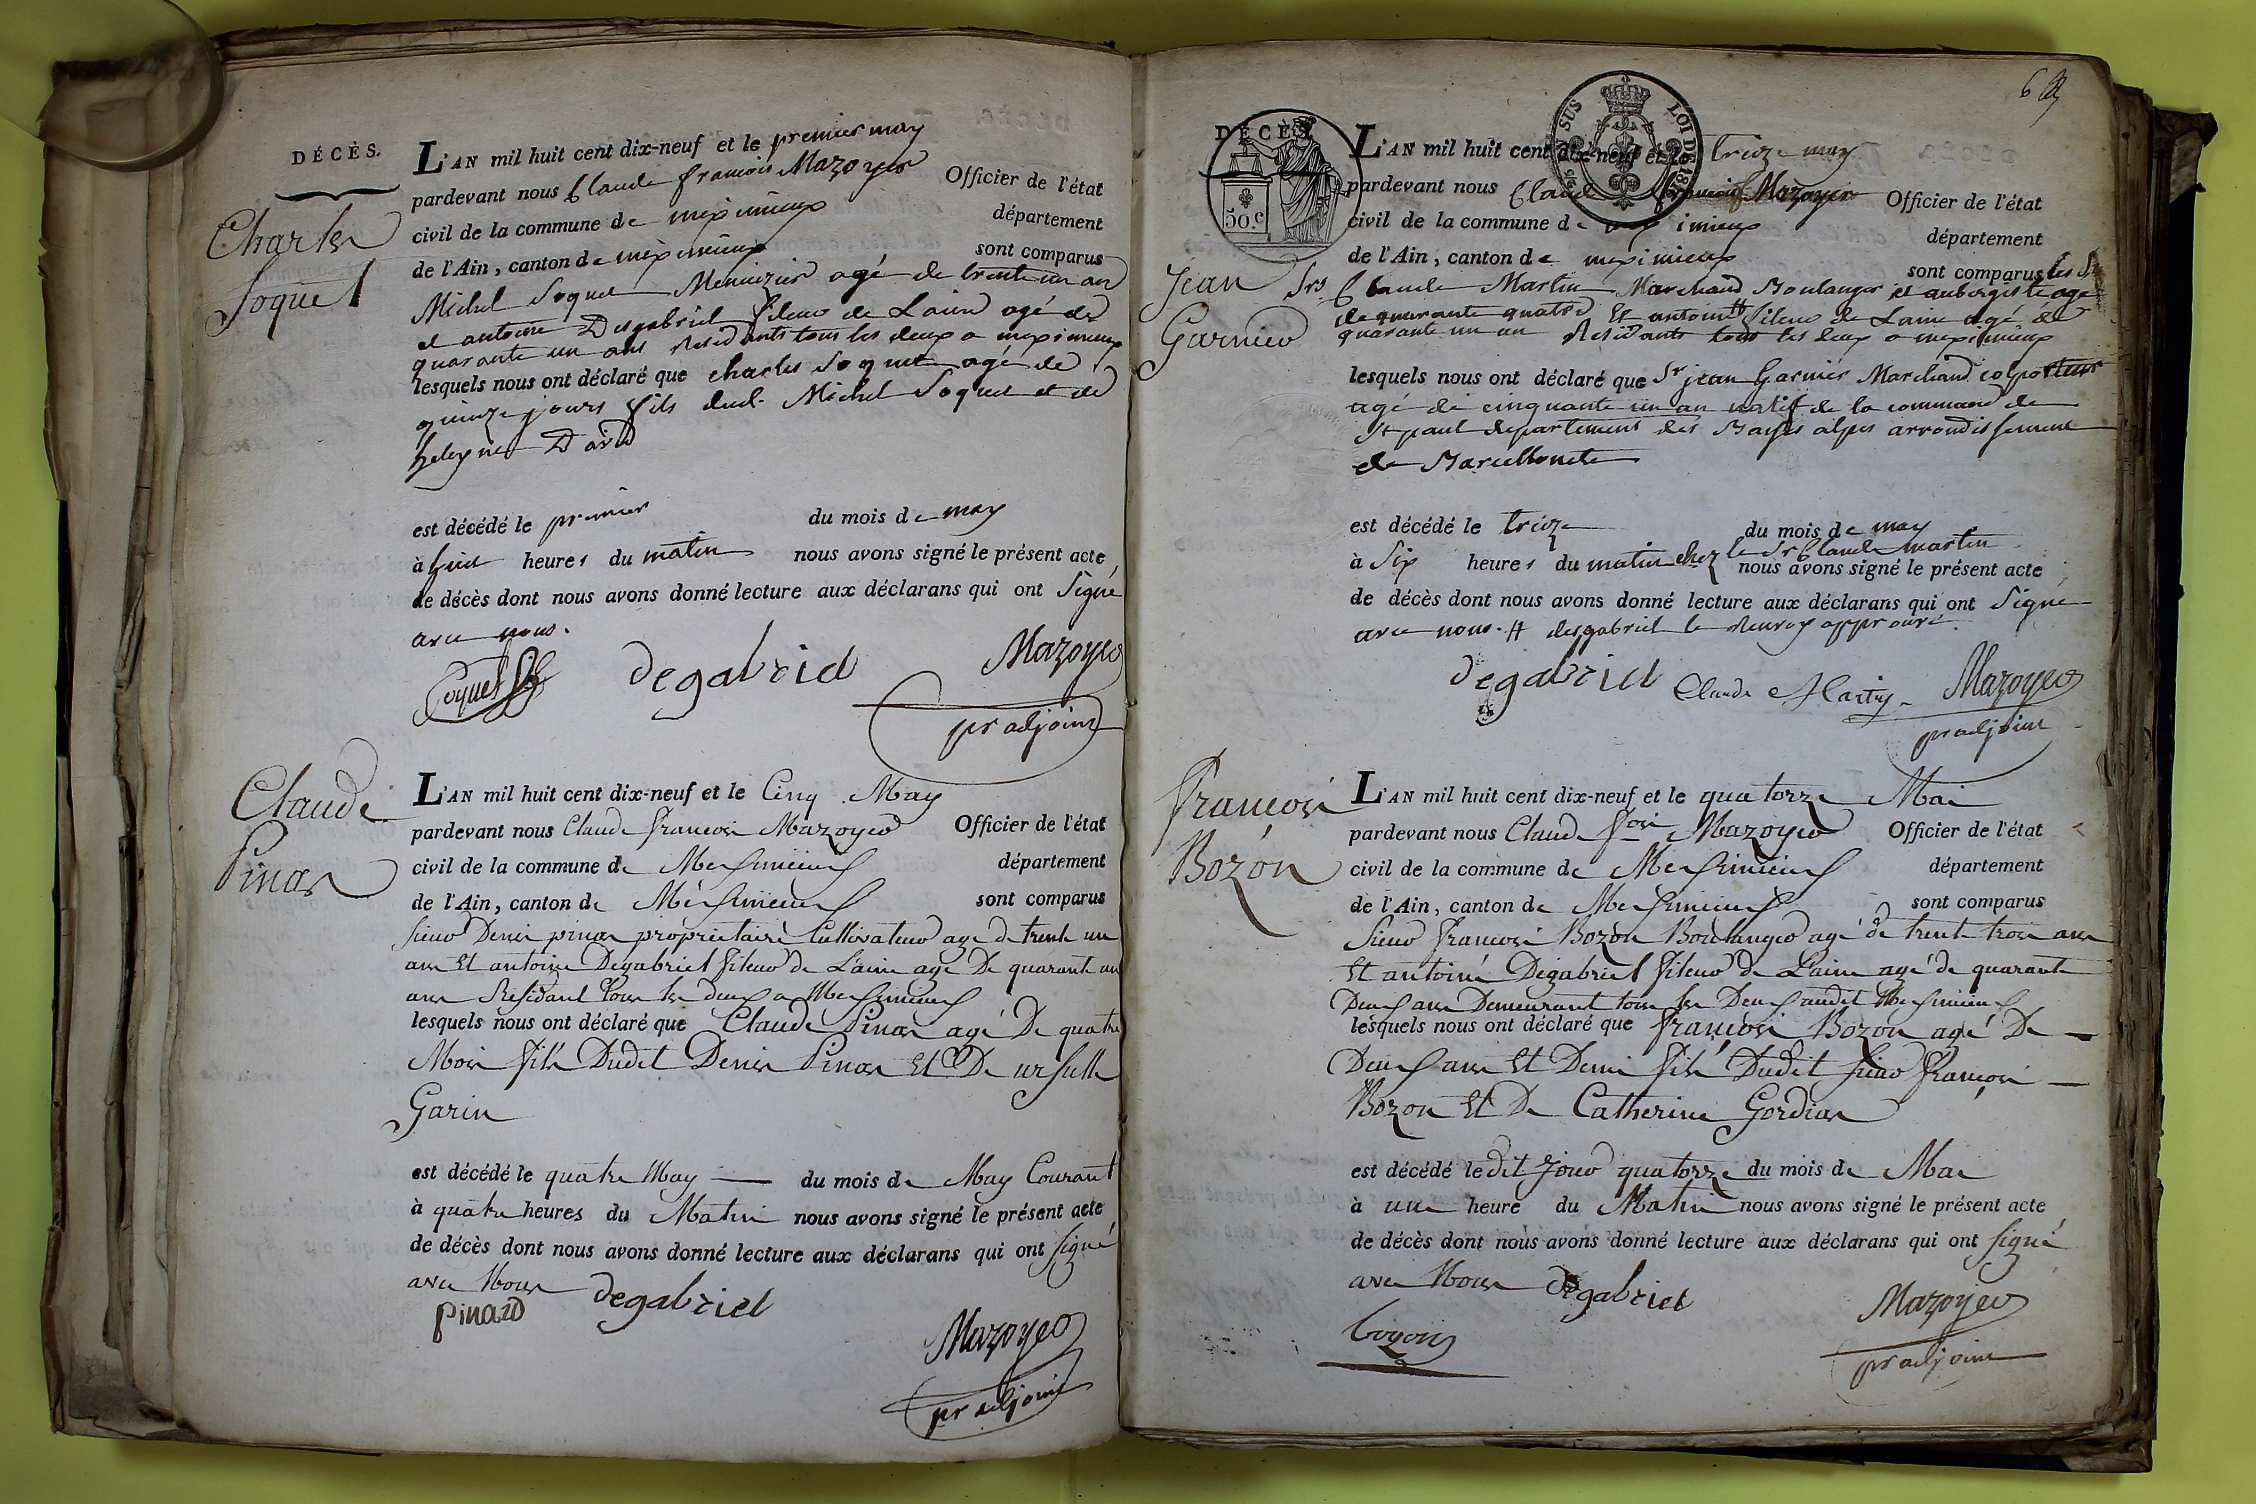 DÉCÈS.
Charles
Soquet
L'AN mil huit cent dix-neuf et le premier may
pardevant nous Claude françois Mazoyer Officier de l'état
civil de la commune de meximieux département
de l'Ain, canton de meximieux sont comparus
Michel Soquet Menuizier agé de trente un an
et antoine Desgabriel fileur de Laine agé de
quarante un ans residants tous les deux a meximieux
lesquels nous ont déclaré que charles Soquet agé de
quinze jours fils dud. Michel Soquet et de
David
est décédé le premier du mois de may
à huit heures du matin nous avons signé le présent acte
de décès dont nous avons donné lecture aux déclarans qui ont Signé
avec nous.
Soquet degabriel Mazoyer
pr adjoint
Claude
Pinar
L'AN mil huit cent dix-neuf et le Cinq May
pardevant nous Claude françois Mazoyer Officier de l'état
civil de la commune de Meximieux département
de l'Ain, canton de Méximieux sont comparus
Sieur Denis pinar propriétaire Cultivateur age de trente un
ans Et antoine Degabriel fileur de Laine age De quarante un
ans Résidant Tous les deux a Meximieux
lesquels nous ont déclaré que Claude Pinar agé De quatre
Mois fils Dudit Denis Pinar Et De ursulle
Garin
est décédé le quatre May du mois de May Courant
à quatre heures du Matin nous avons signé le présent acte
de décès dont nous avons donné lecture aux déclarans qui ont Signé
avec Nous degabriel
pinard
Mazoyer
pr adjoint
6
DÉCÈS.
50.c
SUS
LOI DE 1816
Jean
Garnier
L'AN mil huit cent dix-neuf et le treize may
pardevant nous Claude françois Mazoyer Officier de l'état
civil de la commune de meximieux département
de l'Ain, canton de meximieux sont comparus les
Srs Claude Martin Marchand Boulanger et aubergiste age
de quarante quatre Et antoine # fileur de Laine agé de
quarante un an Residants tous les deux a meximieux
lesquels nous ont déclaré que Sr jean Garnier Marchand colporteur
agé de cinquante un an natif de la commune de
St paul département des Basses alpes arrondissement
de Barcellonette
est décédé le treize du mois de may
à Six heures du matin chez le Sr Claude martin
nous avons signé le présent acte
de décès dont nous avons donné lecture aux déclarans qui ont Signé
avec nous. # desgabriel le renvoy approuvé.
degabriel Claude Martin Mazoyer
pr adjoint
François
Bozon
L'AN mil huit cent dix-neuf et le quatorze Mai
pardevant nous Claude fcois Mazoyer Officier de l'état
civil de la commune de Meximieux département
de l'Ain, canton de Meximieux sont comparus
Sieur François Bozon Boulanger agé de trente trois ans
Et antoine Dégabriel fileur de Laine agé de quarante
Deux ans Demeurant tous les Deux audit Meximieux
lesquels nous ont déclaré que François Bozon agé De
Deux ans Et Demi fils Dudit Sieur François
Bozon Et De Catherine Gordian
est décédé le dit Jour quatorze du mois de Mai
à une heure du Matin nous avons signé le présent acte
de décès dont nous avons donné lecture aux déclarans qui ont Signé
avec Nous degabriel
Mazoyer
pr adjoint